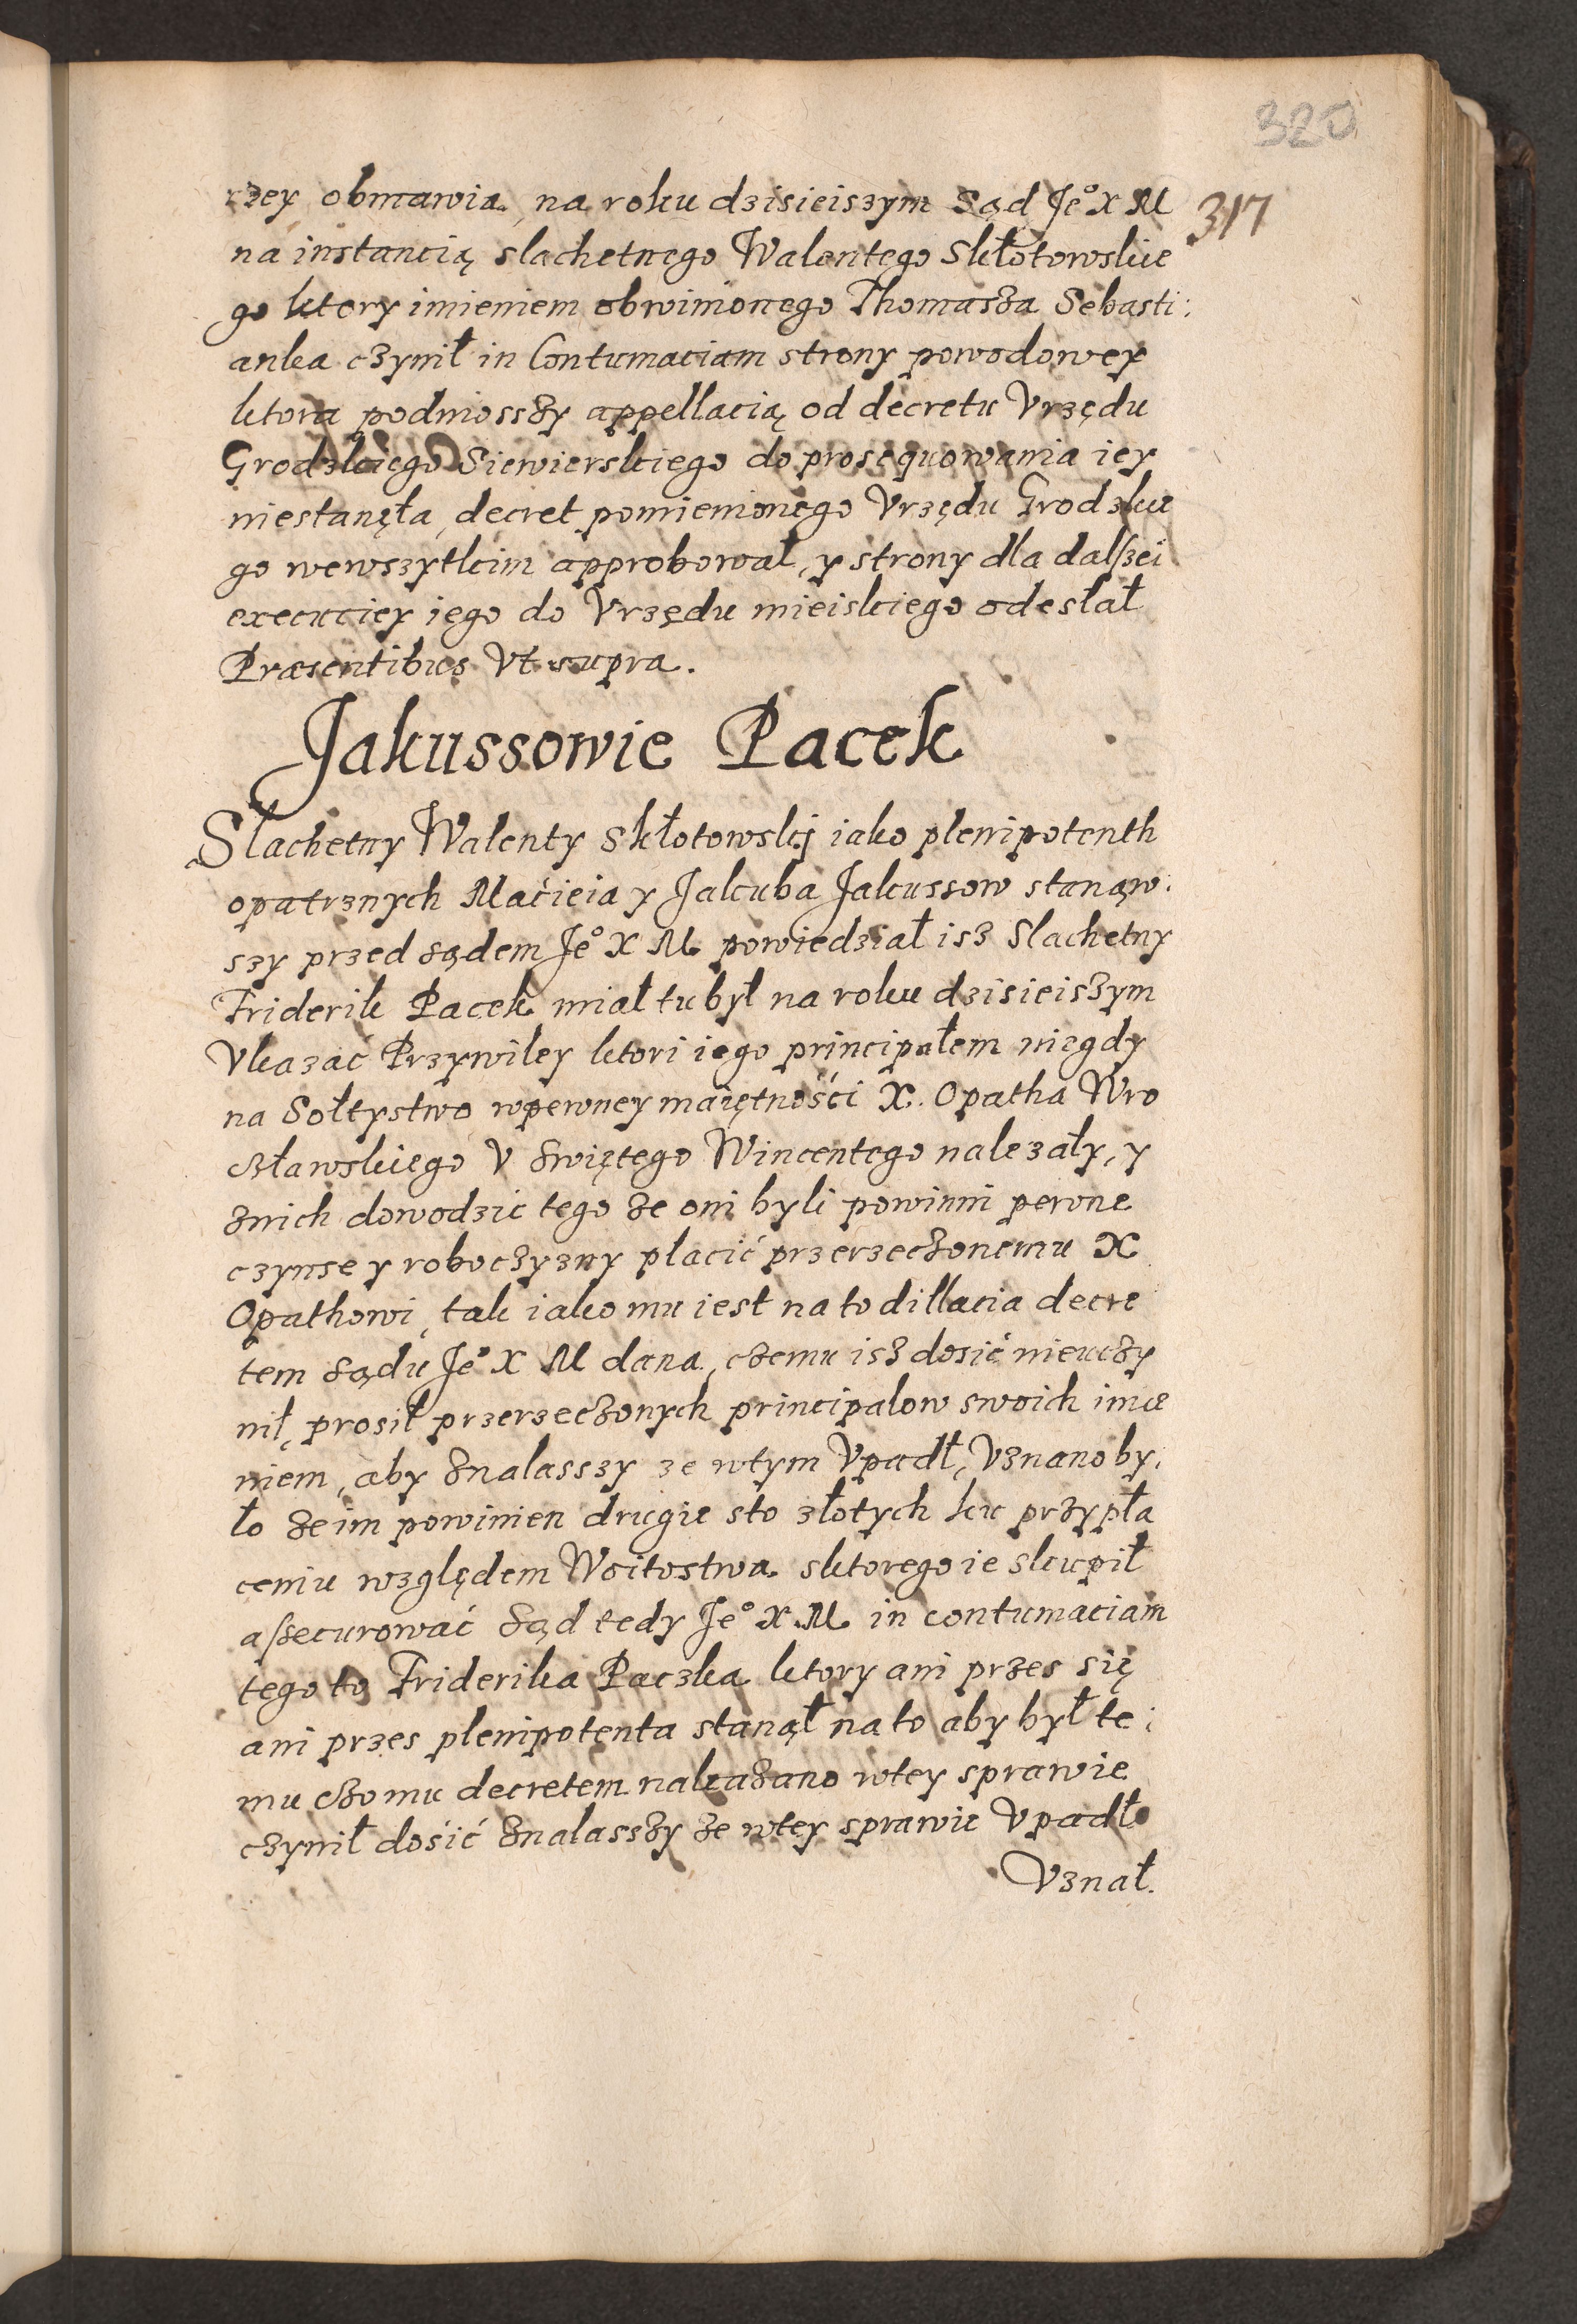 320
317
rzey obmawia, na roku dzisieiszym Sąd Je° X M
na instancią slachetnego Walentego Skłotowskie
go ktory imieniem obwinionego Thomasza Sebasti:
anka czynił in Contumaciam strony powodowey
ktora podniosszy appellacią od decretu Vrzędu
Grodzkiego Siewierskiego do prosequowania iey
niestanęła, decret pomienionego Vrzędu Grodzkie
go wewszytkim approbował, y strony dla dalszei
execuciey iego do Vrzędu mieiskiego odesłał
Præsentibus Vt supra.
Jakussowie Pacek
Slachetny Walenty Skłotowskj iako plenipotenth
opatrznych Maćieia y Jakuba Jakussow stanąw:
szy przed sądem Je° X M powiedział isz Slachetny
Friderik Pacek miał tu był na roku dzisieiszym
Vkazać Przywiley ktori iego principałem niegdy
na Sołtystwo wpewney maiętnośći X. Opatha Wro
czławskiego V Swiętego Wincentego nalezały, y
znich dowodzić tego ze oni byli powinni pewne
czynse y roboczyzny płacić przerzeczonemu X
Opathowi, tak iako mu iest na to dillacia decre
tem sądu Je° X M dana, czemu isz dosić nieuczy
nił, prosił przerzeczonych principalow swoich imie
niem, aby znalasszy ze wtym Vpadł, Vznano by:
ło ze im powinien drugie sto złotych ku przypła
ceniu względem Woitostwa sktorego ie skupił
assecurować Sąd tedy Je° X M in contumaciam
tego to Friderika Paczka ktory ani przes się
ani przes plenipotenta stanął na to aby był te:
mu czomu decretem nakazano wtey sprawie
czynił dośić znalasszy ze wtey sprawie Vpadł
Vznał.